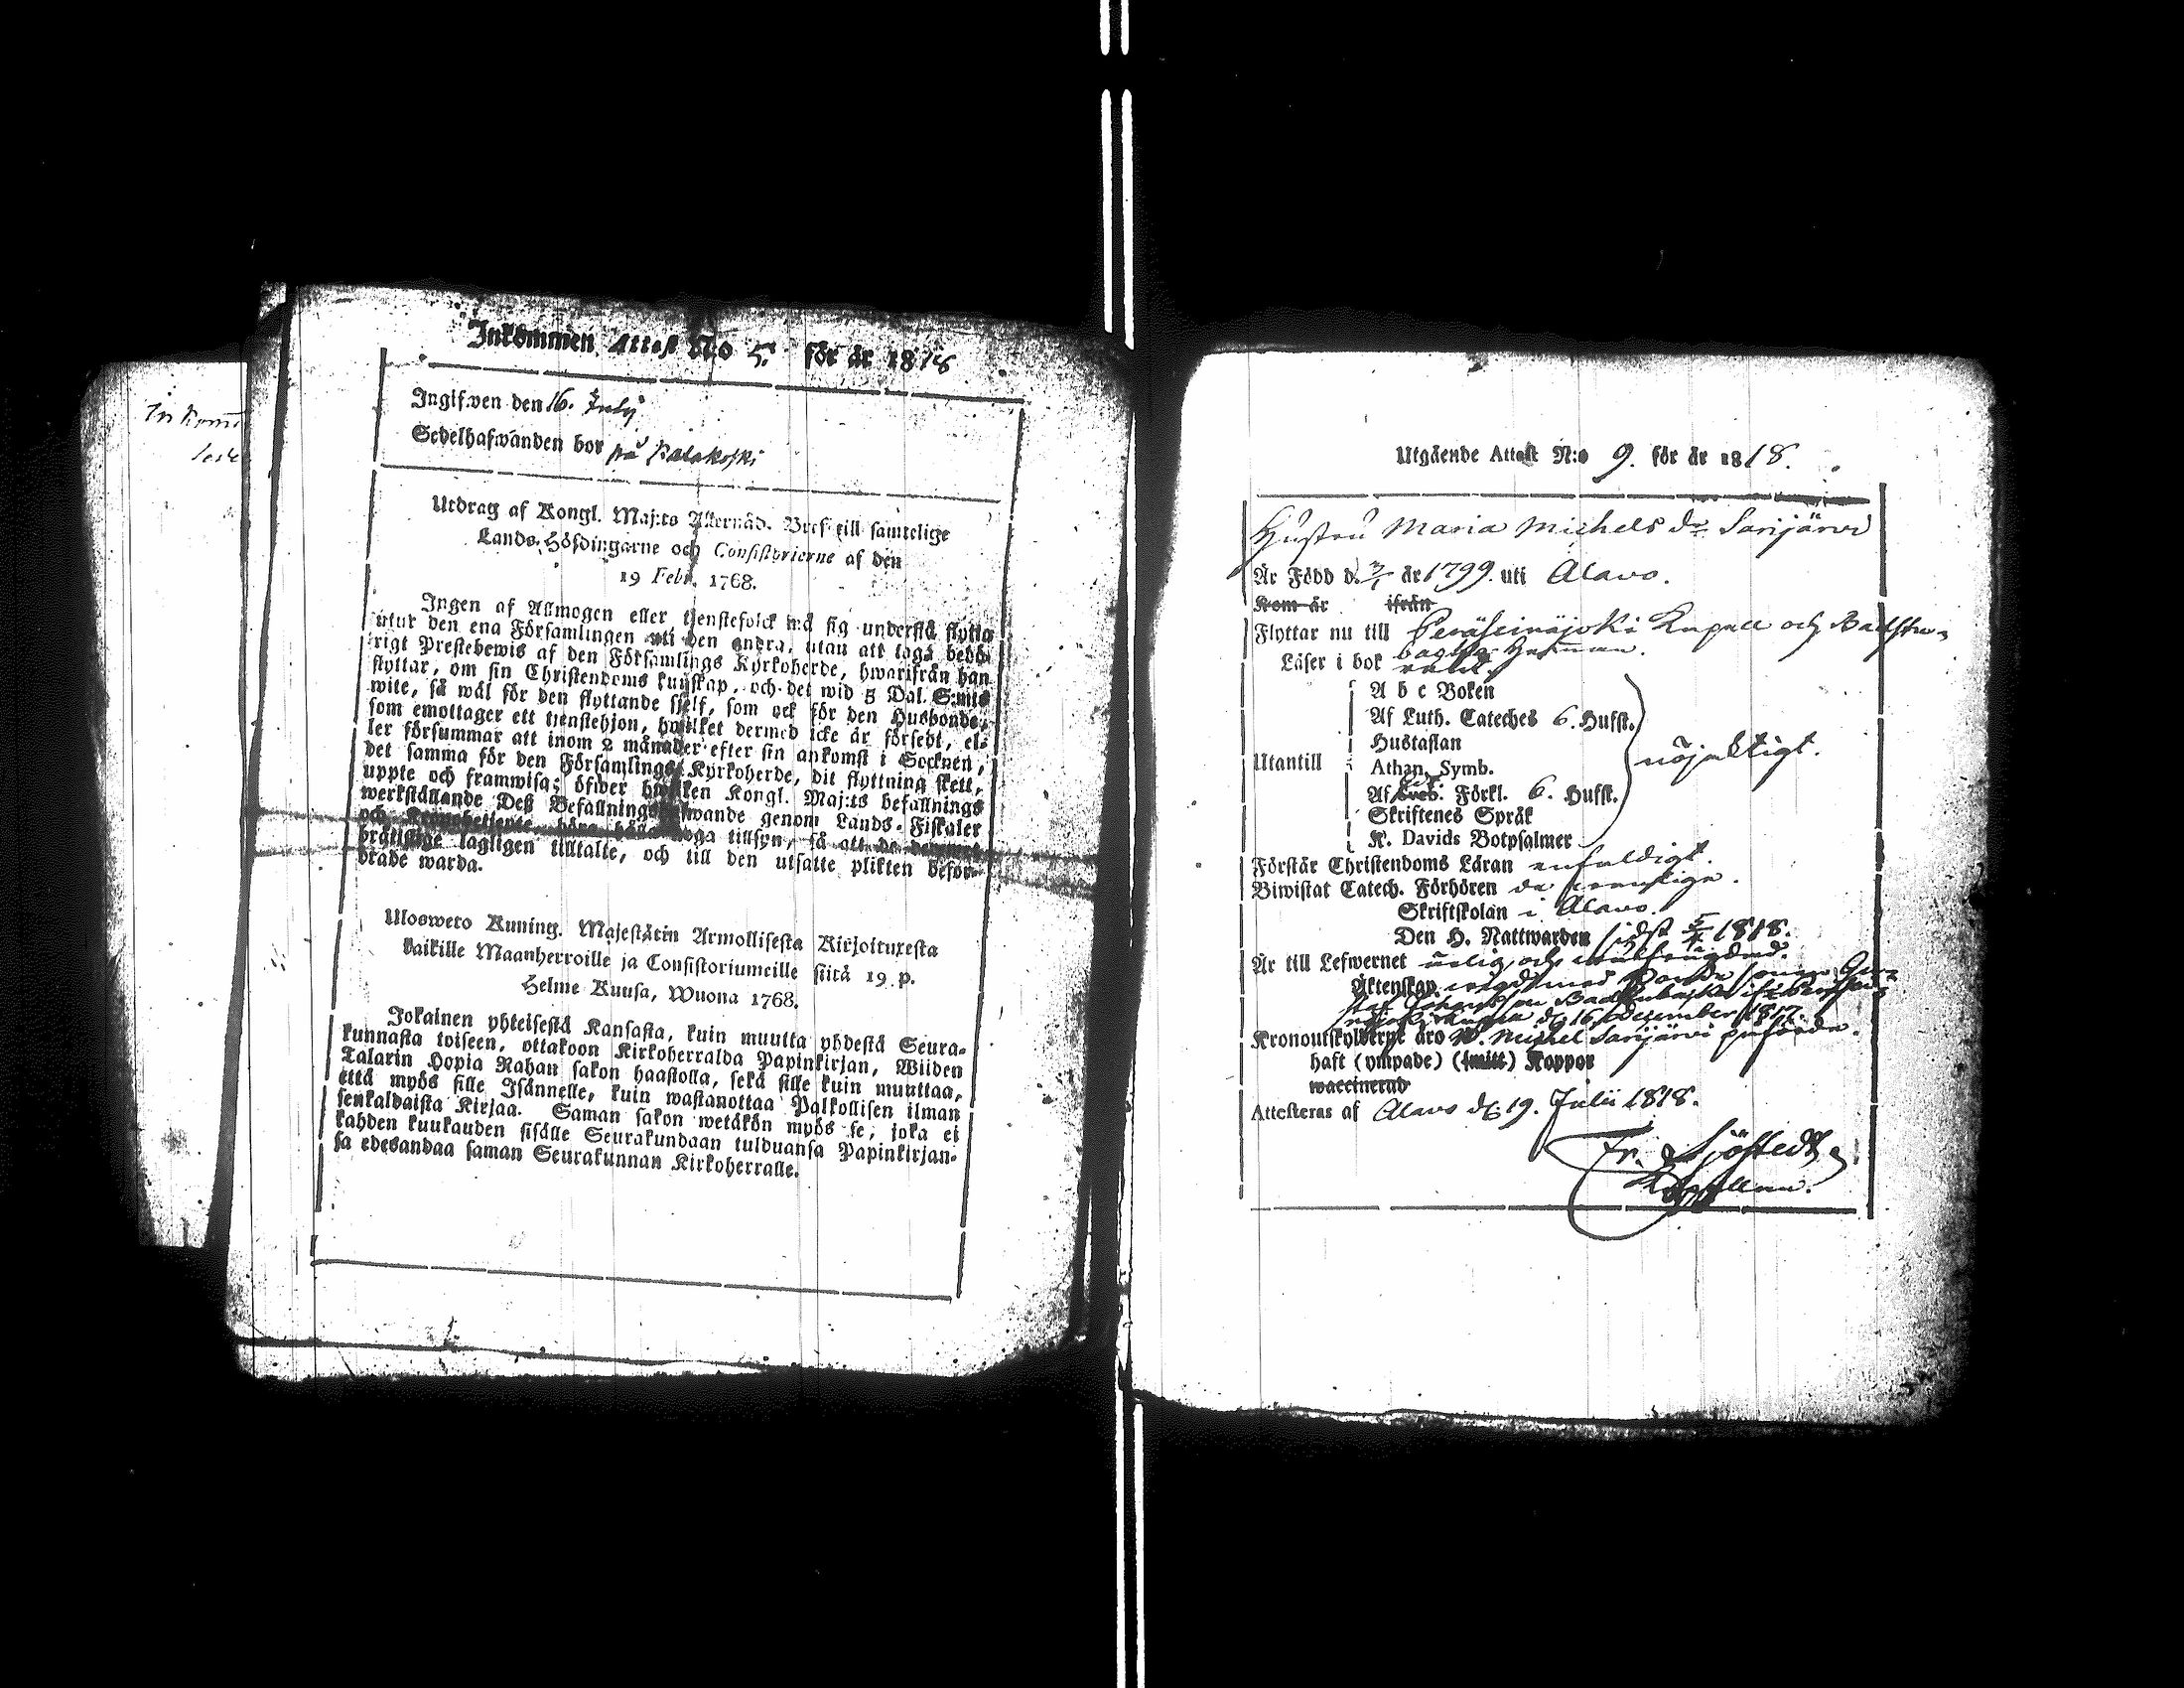 Inkommen Attest No 5. för år 1818
Ingifwen den 16. July
Sedelhafwanden bor på Palakoski
Utdrag af Kongl. Maj:ts Allernåd. Bref till samtelige
Lands-Höfdingarne och Consistorierne af den
19 Febr. 1768.
Ingen af Allmogen eller tjenstefolck må sig understå flytta
utur den ena Församlingen uti den andra, utan att taga behö-
rigt Prestebewis af den Församlings Kyrkoherde, hwarifrån han
flyttar, om sin Christendoms kunskap, och det wid 5 Dal. S:mts
wite, så wäl för den flyttande sjelf, som ock för den Husbonde,
som emottager ett tjenstehjon, hwilket dermed icke är försedt, el-
ler försummar att inom 2 månader efter sin ankomst i Socknen,
det samma för den Församlings Kyrkoherde, dit flyttning skett,
uppte och framwisa; öfwer hwilken Kongl. Maj:ts befallnings
werkställande Deß Befallningshafwande genom Lands-Fiskaler
och Kronobetjente böra hålla noga tillsyn, så att de
brottslige lagligen tilltalte, och till den utsatte plikten befor-
drade warda.
Ulosweto Kuning. Majestätin Armollisesta Kirjoituxesta
kaikille Maanherroille ja Consistoriumeille siitä 19 p.
Helme Kuusa, Wuona 1768.
Jokainen yhteisestä Kansasta, kuin muutta yhdestä Seura-
kunnasta toiseen, ottakoon Kirkoherralda Papinkirjan, Wiiden
Talarin Hopia Rahan sakon haastolla, sekä sille kuin muuttaa,
että myös sille Isännelle, kuin wastanottaa Palkollisen ilman
senkaldaista Kirjaa. Saman sakon wetäkön myös se, joka ei
kahden kuukauden sisälle Seurakundaan tulduansa Papinkirjan-
sa edesandaa saman Seurakunnan Kirkoherralle.
Utgående Attest N:o 9. för år 1818.
Hustru Maria Michels dr Sarijärvi
Är Född d. 3/1 år 1799. uti Alavo.
Kom år ifrån
Flyttar nu till Peräseinäjoki Kapell och Backstu-
Läser i bok
A b c Boken
Af Luth. Cateches 6. Hufst.
Hustaflan
Utantill
Athan. Symb.
nöjaktigt.
Af Förkl. 6. Hufst.
Skriftenes Språk
K. Davids Botpsalmer
Förstår Christendoms Läran enfaldigt.
Biwistat Catech. Förhören de
Skriftskolan i Alavo.
Den H. Nattwarden sidst 1818.
Är till Lefwernet ärlig och
Äktenskap wigd med
d. 16 December 1817.
Kronoutskylderne äro Michel Sarijärvi påförda.
haft (ympade) (smitt.) Koppor
waccinerad
Attesteras af Alavo d. 19. Julii 1818.
Fr. Sjöstedt
Kapellan.